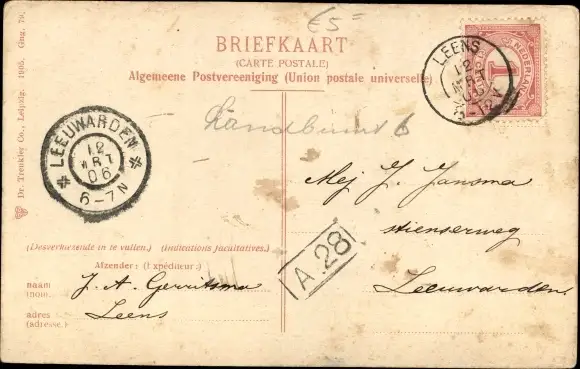 £5=
BRIEFKAART
(CARTE POSTALE)
Algemeene Postvereeniging (Union postale universelle)
LEENS
12
MRT
06
NEDERLAND
1
LEEUWARDEN
12
MRT
06
6-7N
Dr. Trenkler Co., Leipzig. 1905. Gng. 79.
Mej J. Jansma
Leeuwarden
A 28
(Desverkiezende in te vullen.) (Indications facultatives.)
Afzender: (Expéditeur:)
naam J. A. Gerritsma
(nom.
adres Leens
(adresse.)